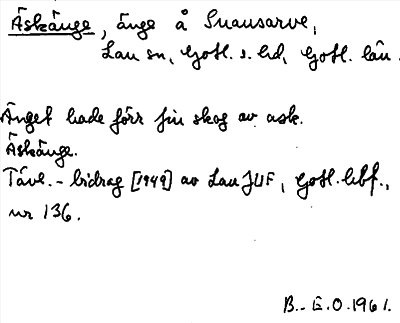 Äskänge, änge å Snausarve,
Lau sn, Gotl. s. hd, Gotl. län.
Änget hade förr fin skog av ask.
Äskänge.
Tävl.-bidrag [1949] av Lau JUF, Gotl. hbf.,
nr 136.
B.-G.O. 1961.